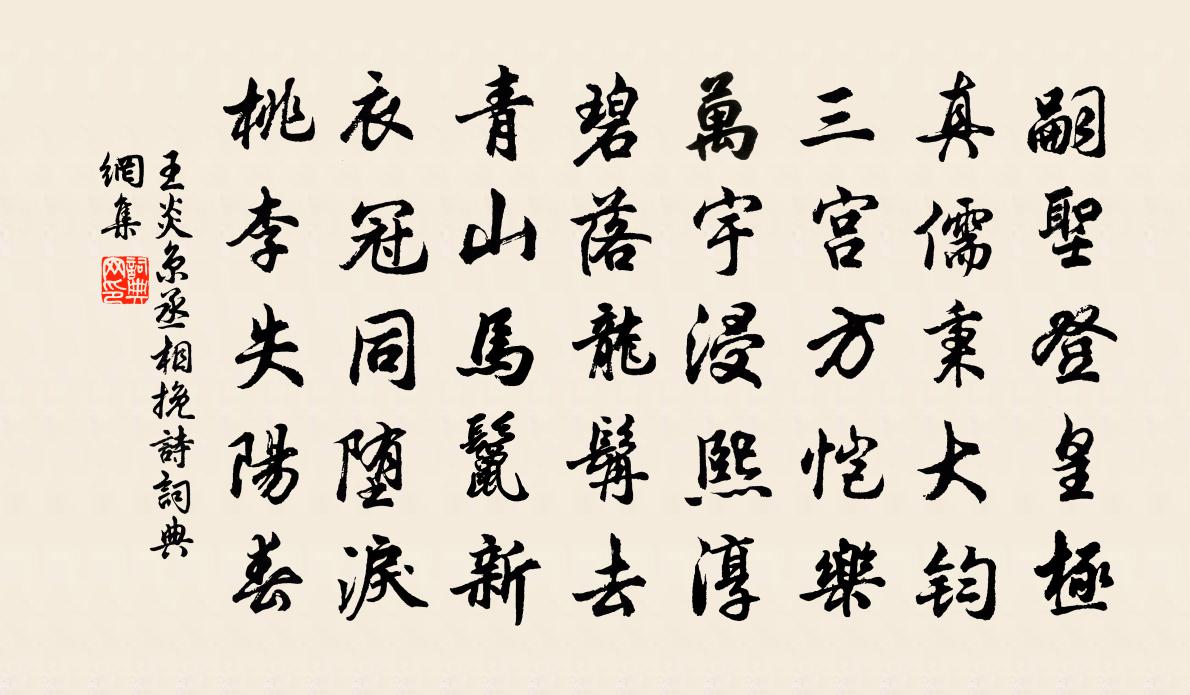 嗣聖登皇極
真儒秉大鈞
三宮方愷樂
萬宇浸熙淳
碧落龍髯去
青山馬鬣新
衣冠同墮淚
桃李失陽春
王炎京丞相挽詩詞典
網集
詞典
网印